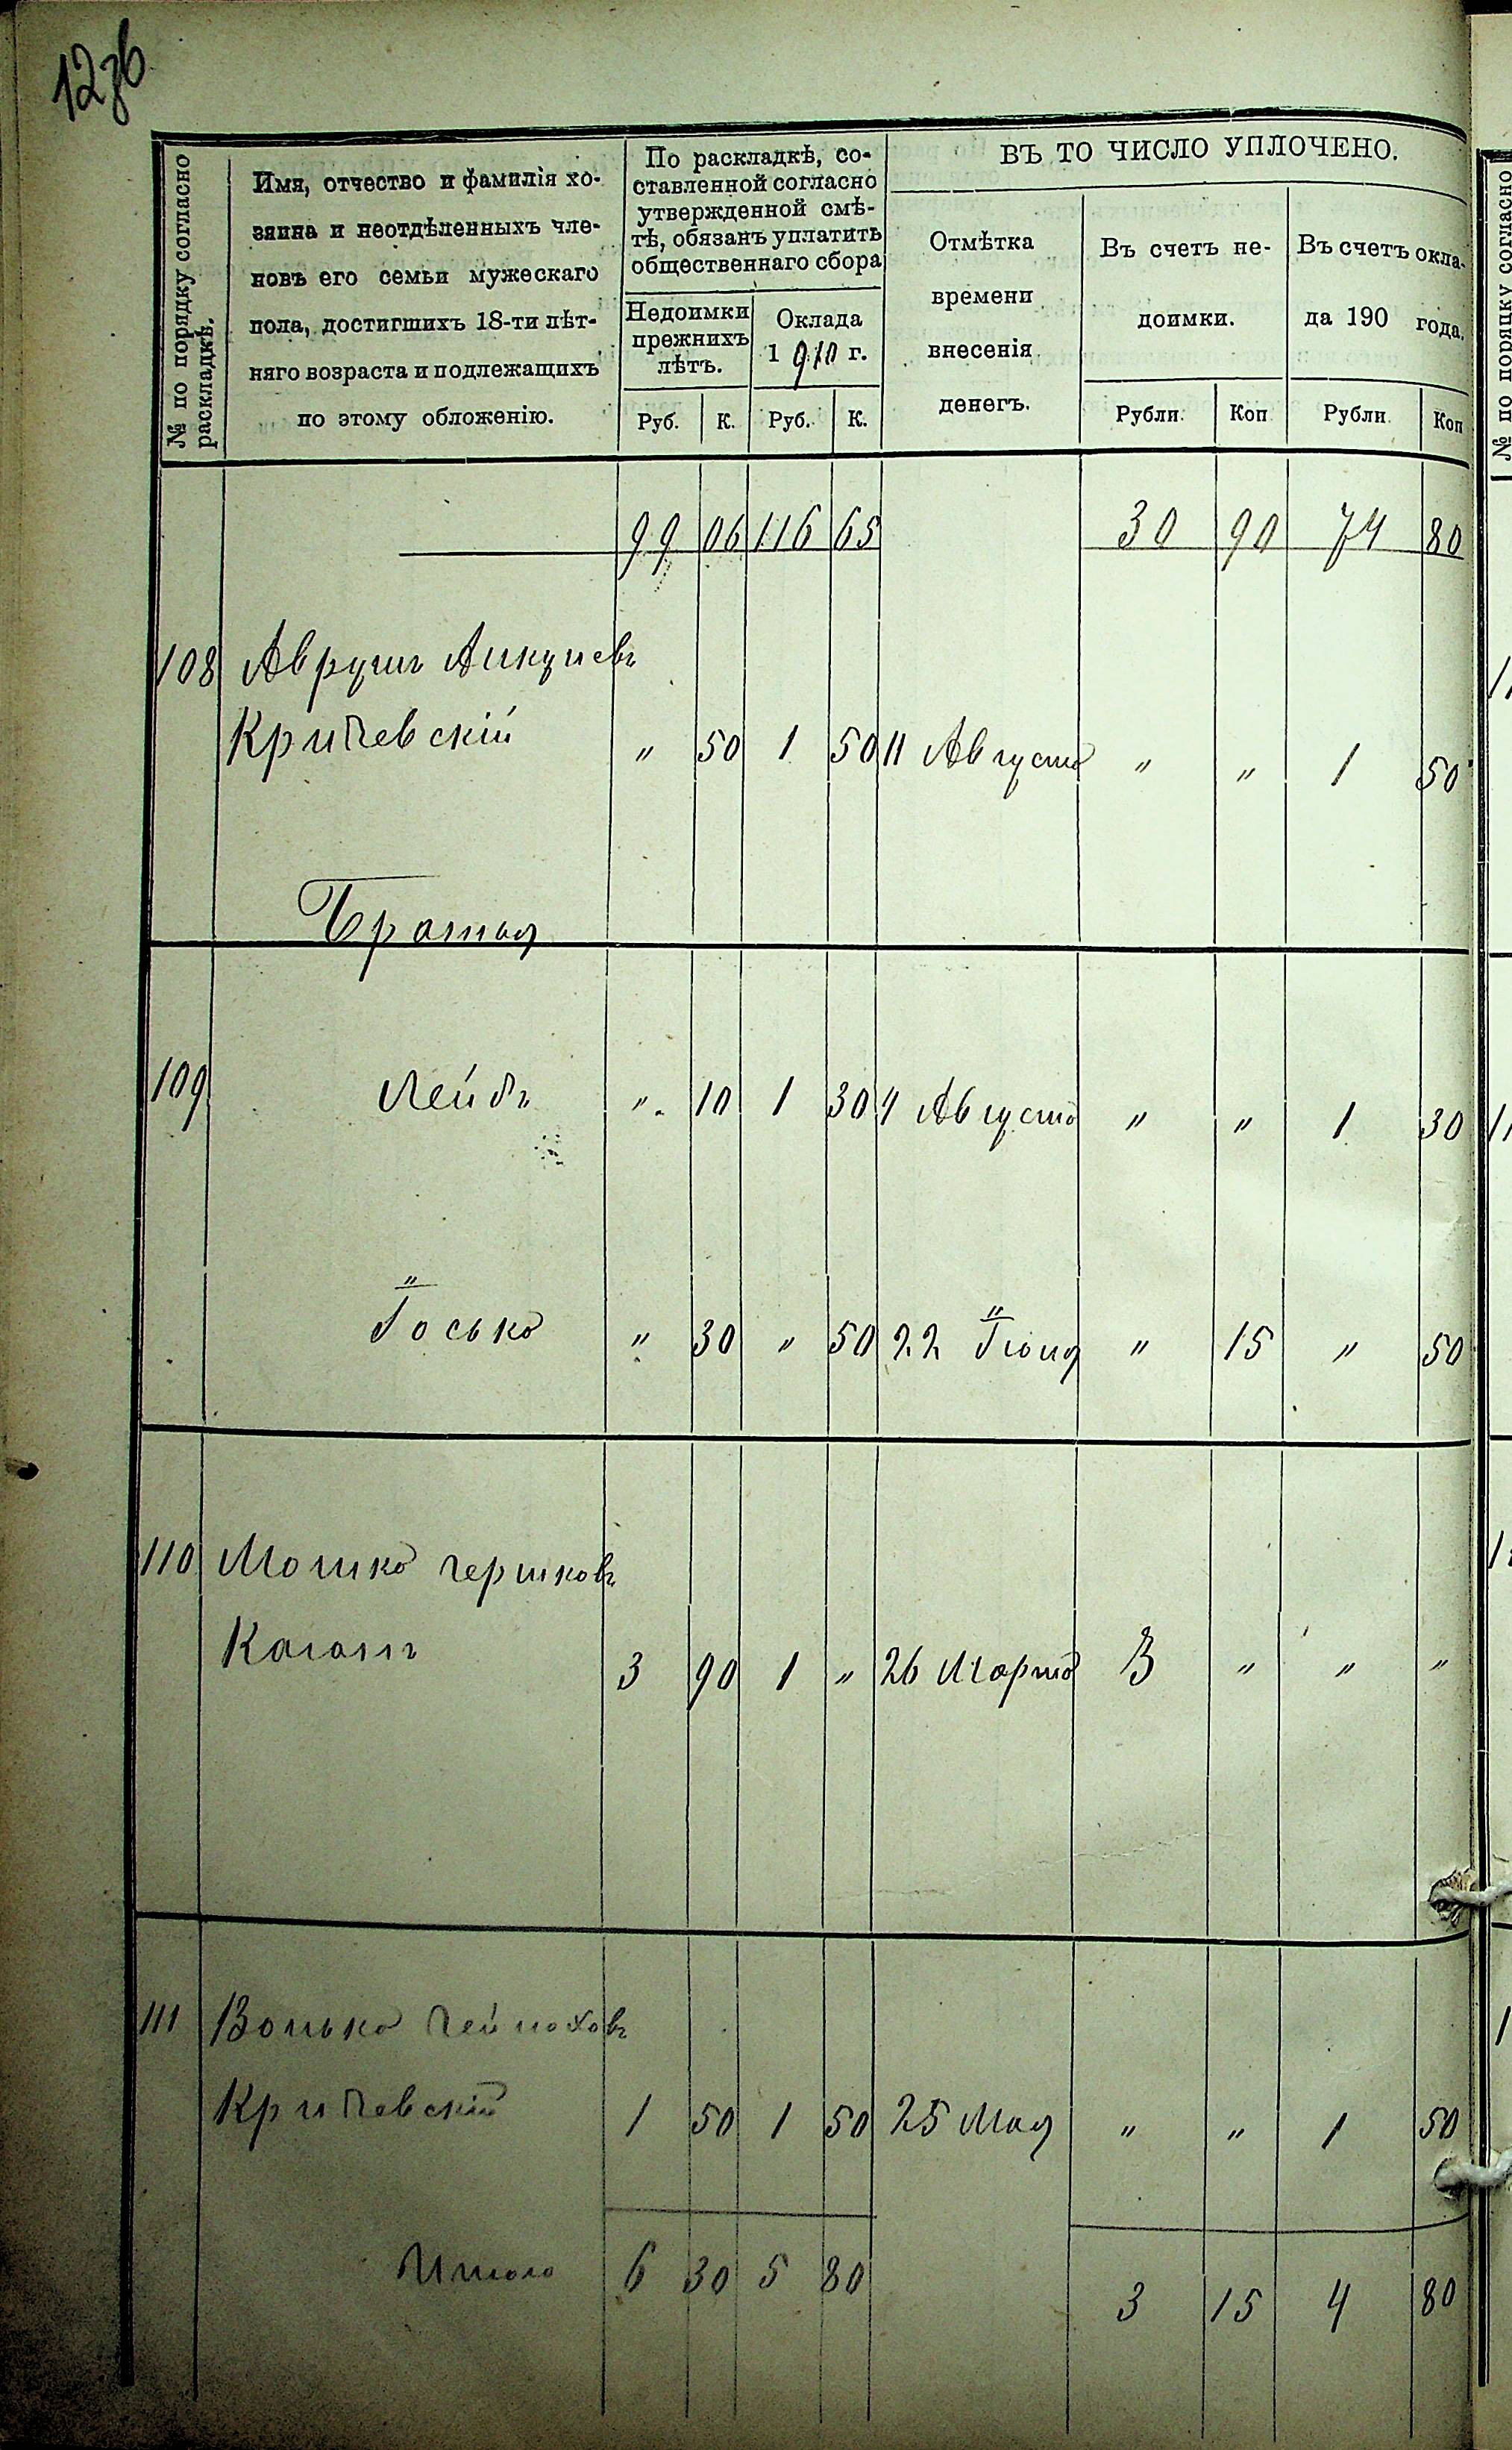 12зб
№ по порядку согласно
раскладкѣ.
Имя, отчество и фамилія хо-
зяина и неотдѣленныхъ чле-
новъ его семьи мужескаго
пола, достигшихъ 18-ти лѣт-
няго возраста и подлежащихъ
по этому обложенію.
По раскладкѣ, со-
ставленной согласно
утвержденной смѣ-
тѣ, обязанъ уплатить
общественнаго сбора
Недоимки
прежнихъ
лѣтъ.
Оклада
1910 г.
Руб. К. Руб. К.
ВЪ ТО ЧИСЛО УПЛОЧЕНО.
Отмѣтка
времени
внесенія
денегъ.
Въ счетъ не-
доимки.
Рубли. Коп
Въ счетъ окла-
да 190 года.
Рубли Коп
99 06 116 65 30 90 74 80
108 Аврумъ
Кричевскій " 50 1 50 11 Августа " " 1 50
Братья
109 Лейба " 10 1 30 4 Августа " " 1 30
Іосько " 30 " 50 22 Іюня " 15 " 50
110 Мошко Гершковъ
Каганъ 3 90 1 " 26 Марта 3 " " "
111 Волько
Кричевскій 1 50 1 50 25 Мая " " 1 50
Итого 6 30 5 80 3 15 4 80
№ по порядку согласно